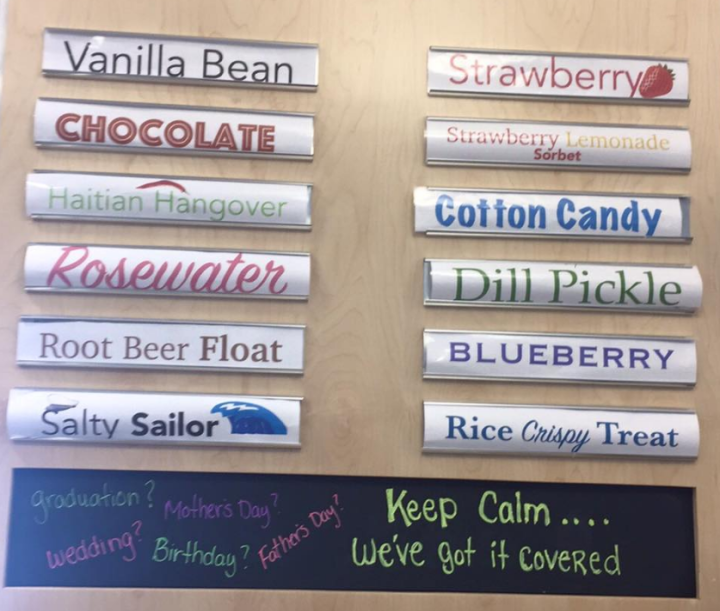 Vanilla Bean
CHOCOLATE
Haitian Hangover
Rosewater
Root Beer Float
Salty Sailor
Strawberry
Strawberry Lemonade
Sorbet
Cotton Candy
Dill Pickle
BLUEBERRY
Rice Crispy Treat
graduation? Mother's Day?
Wedding? Birthday? Father's Day?
Keep Calm ....
We've got it covered